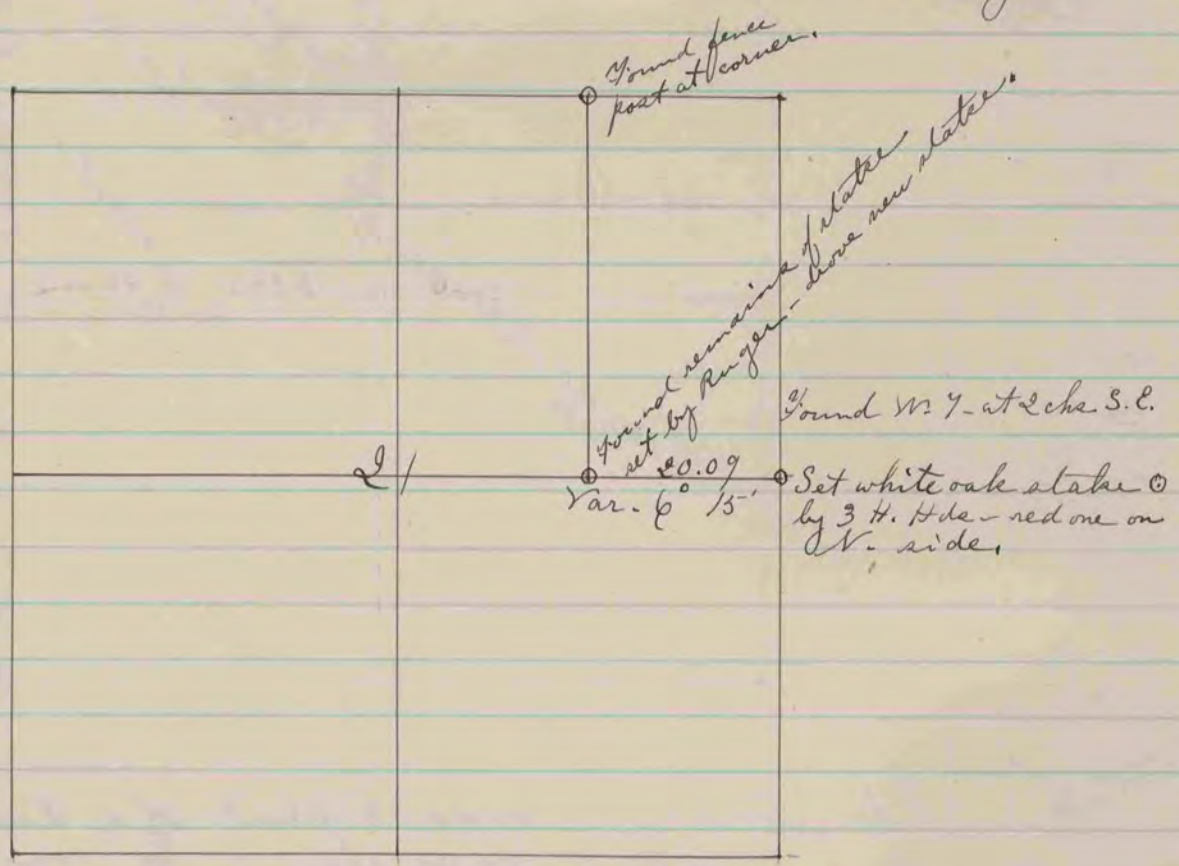 Found fence
post at corner.
Found remains of stake
set by Ruger - drove new stake.
Found at 2 chs S.E.
21
20.09
Var. 6° 15'
Set white oak stake ⊙
by 3 H. Hds - red one on
N. side.